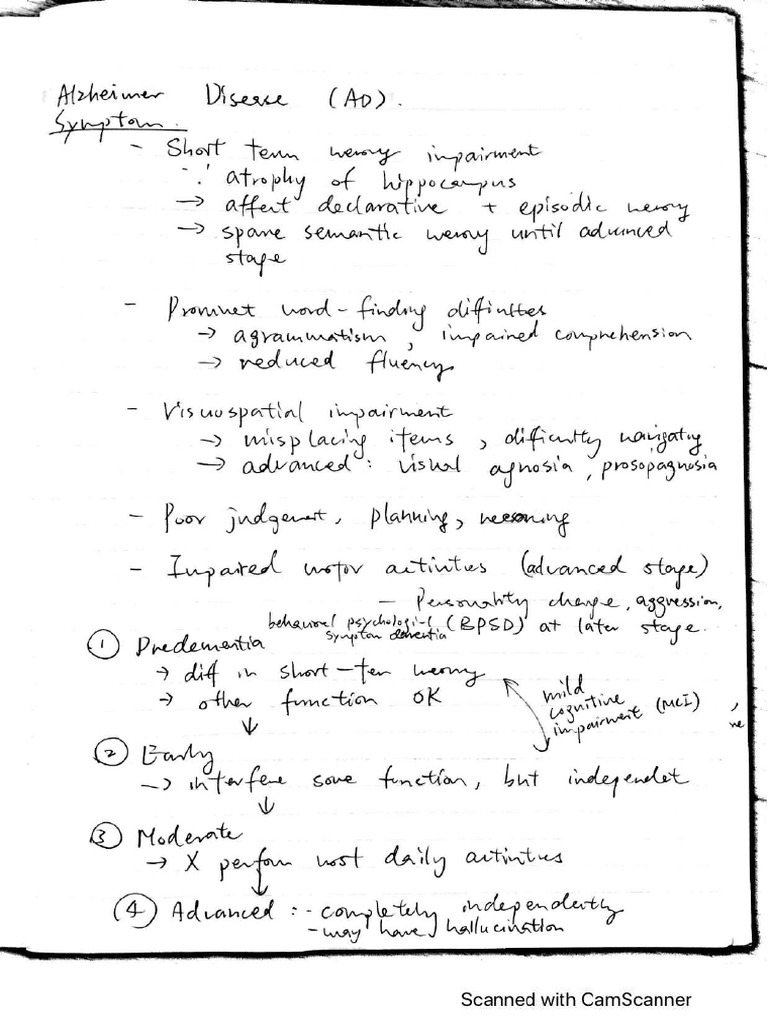 Alzheimer Disease (AD).
Symptom.
- Short term memory impairment
∵ atrophy of hippocampus
→ affect declarative + episodic memory
→ spare semantic memory until advanced
stage
- Prominet word-finding difficulties
→ agrammatism, impained comprehension
→ reduced fluency
- Visuospatial impairment
→ misplacing items, difficultly navigating
→ advanced: visual agnosia, prosopagnosia
- Poor judgement, planning, reasoning
- Impaired motor activities (advanced stage)
- Personality change, aggression,
behavioral psychological (BPSD) at later stage.
symptom dementia
① Predementia
→ diff in short-term memory
→ other function OK
mild
cognitive
impairment (MCI)
↓
② Early
→ interfere some function, but independet
↓
③ Moderate
→ X perform most daily activities
↓
④ Advanced: - completely independently
- may have hallucination
Scanned with CamScanner